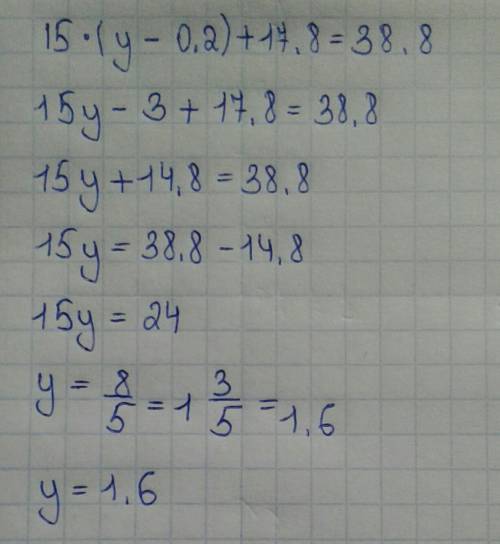 15·(y - 0,2) + 17,8 = 38,8
15y - 3 + 17,8 = 38,8
15y + 14,8 = 38,8
15y = 38,8 - 14,8
15y = 24
y = 8/5 = 1 3/5 = 1,6
y = 1,6